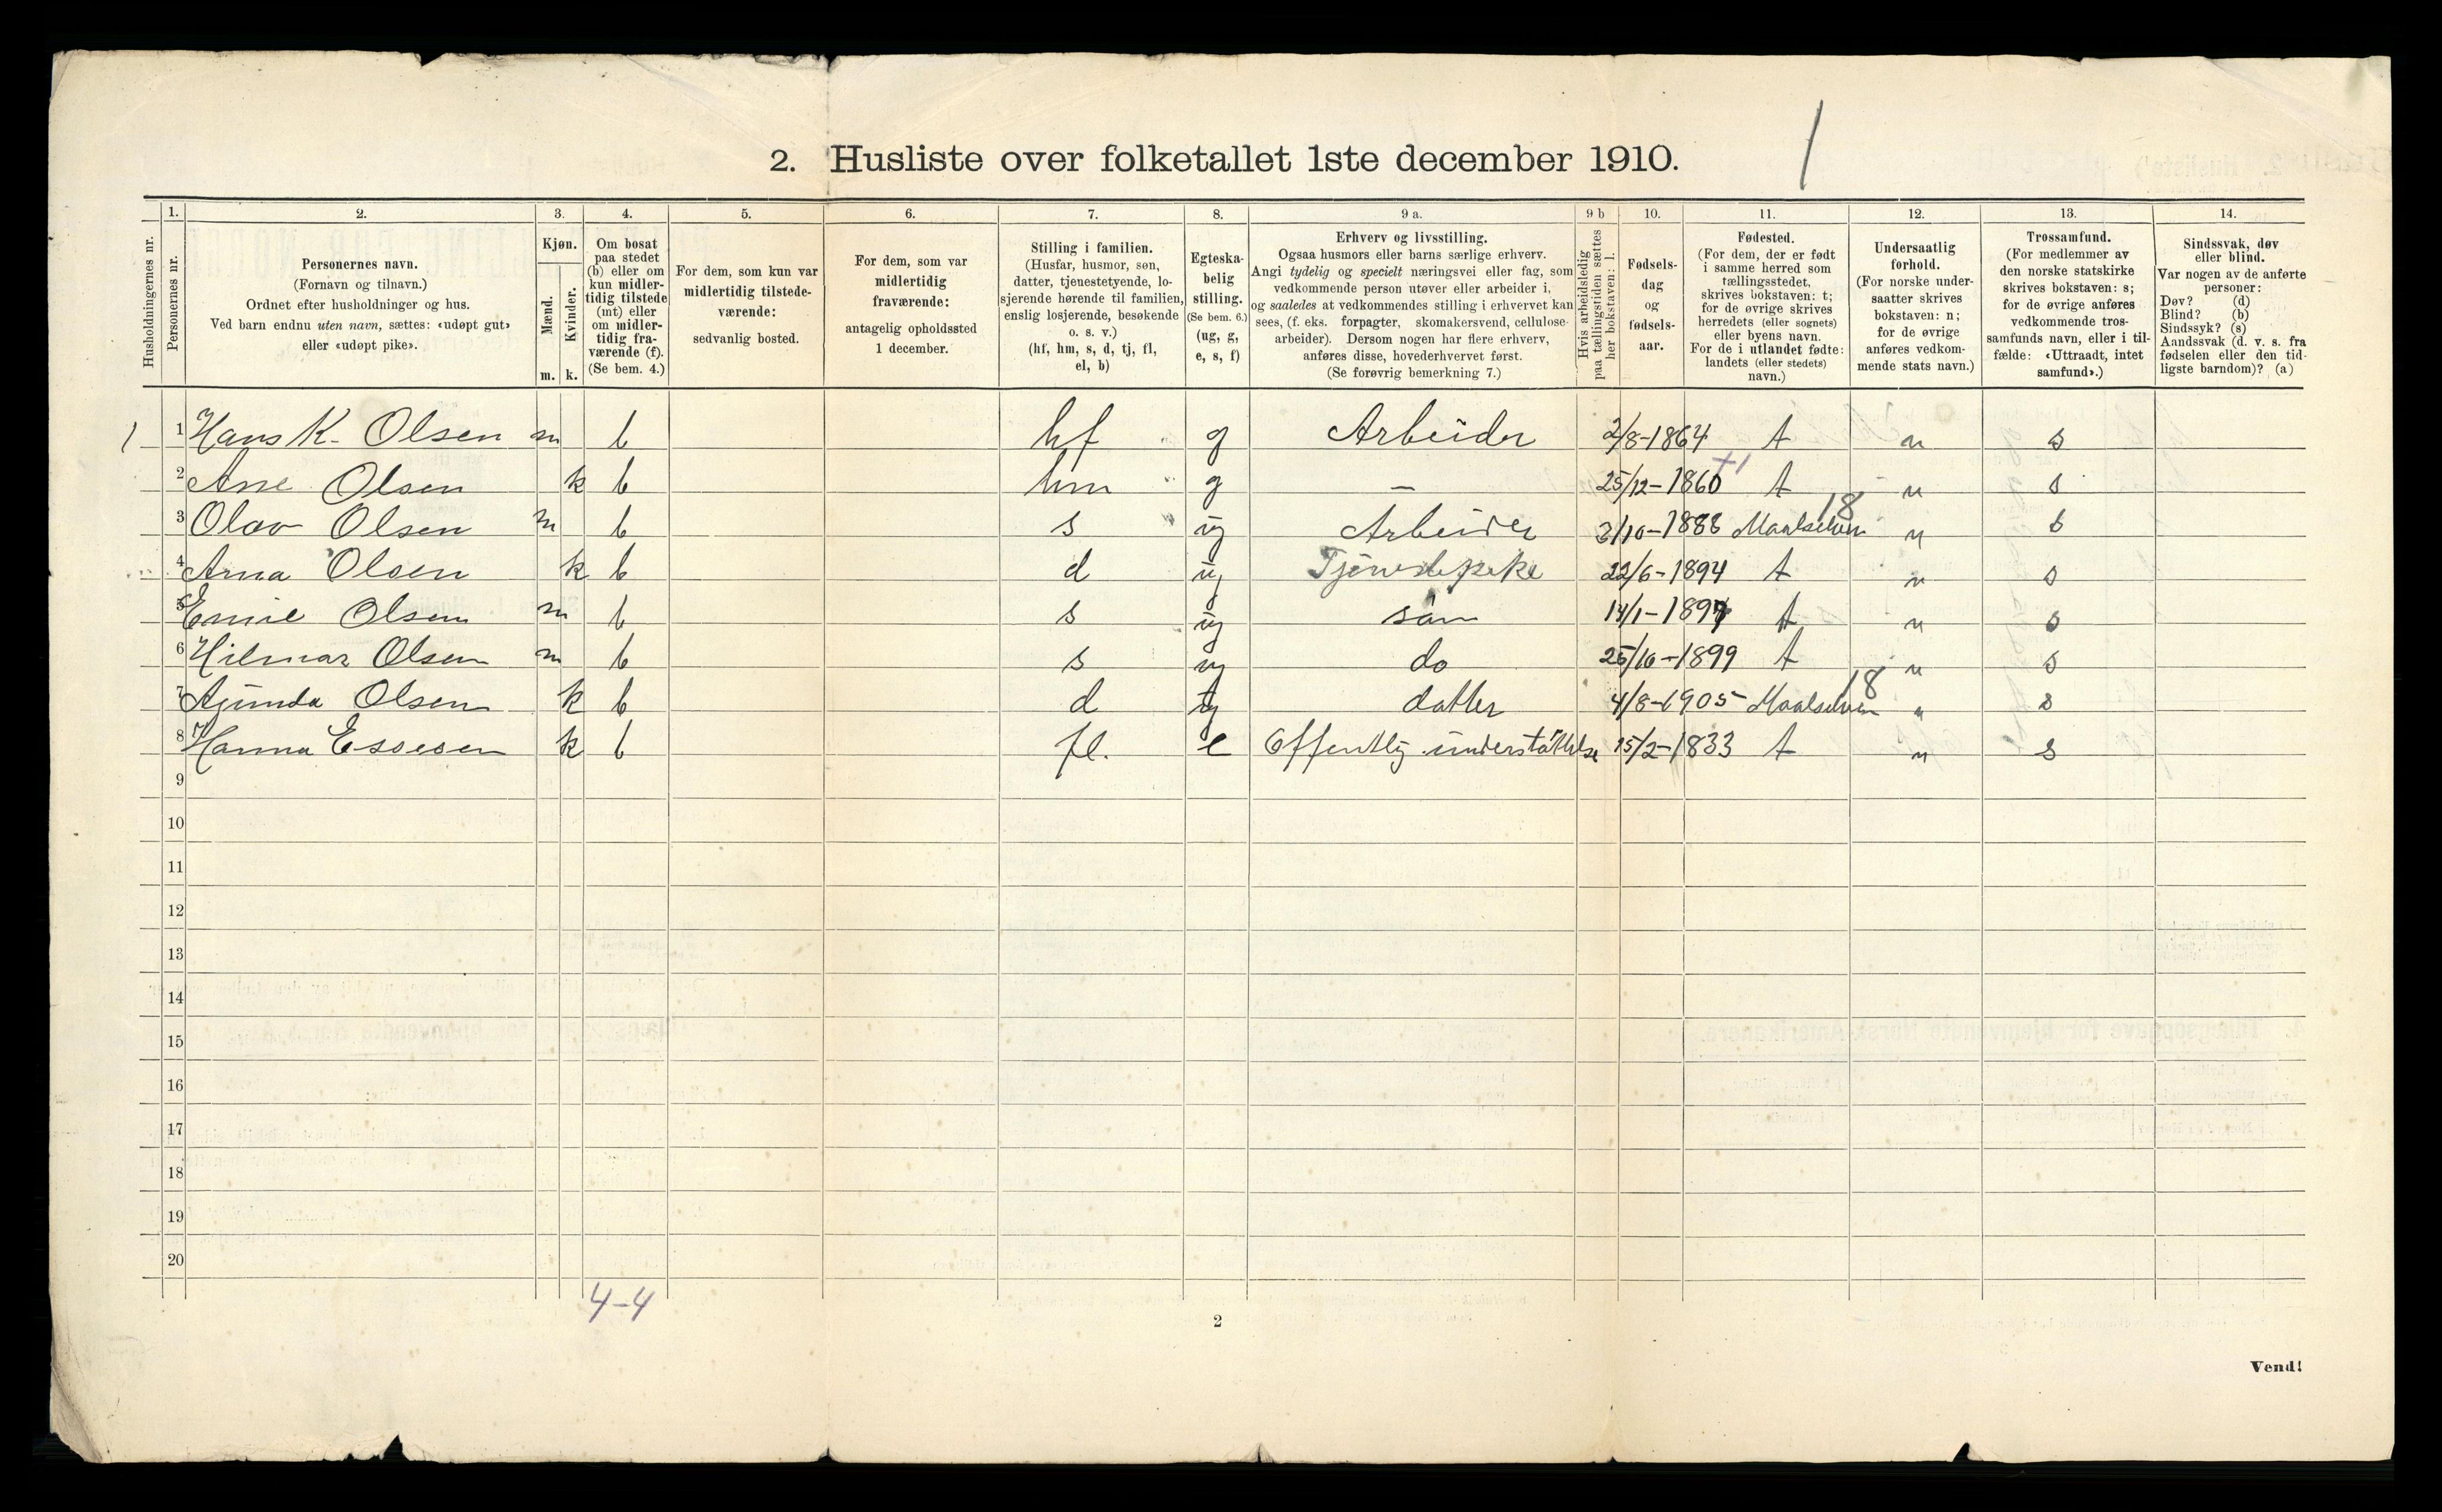 2. Husliste over folketallet 1ste december 1910.
1
Husholdningernes nr.
1.
Personernes nr.
2.
Personernes navn.
(Fornavn og tilnavn.)
Ordnet efter husholdninger og hus.
Ved barn endnu uten navn, sættes: «udøpt gut»
eller «udøpt pike».
3.
Kjøn.
Mænd.
Kvinder.
m. k.
4.
Om bosat
paa stedet
(b) eller om
kun midler-
tidig tilstede
(mt) eller
om midler-
tidig fra-
værende (f).
(Se bem. 4.)
5.
For dem, som kun var
midlertidig tilstede-
værende:
sedvanlig bosted.
6.
For dem, som var
midlertidig
fraværende:
antagelig opholdssted
1 december.
7.
Stilling i familien.
(Husfar, husmor, søn,
datter, tjenestetyende, lo-
sjerende hørende til familien,
enslig losjerende, besøkende
o. s. v.)
(hf, hm, s, d, tj, fl,
el, b)
8.
Egteska-
belig
stilling.
(Se bem. 6.)
(ug, g,
e, s, f)
9 a.
Erhverv og livsstilling.
Ogsaa husmors eller barns særlige erhverv.
Angi tydelig og specielt næringsvei eller fag, som
vedkommende person utøver eller arbeider i,
og saaledes at vedkommendes stilling i erhvervet kan
sees, (f. eks. forpagter, skomakersvend, cellulose-
arbeider). Dersom nogen har flere erhverv,
anføres disse, hovederhvervet først.
(Se forøvrig bemerkning 7.)
9 b
Hvis arbeidsledig
paa tællingstiden sættes
her bokstaven: l.
10.
Fødsels-
dag
og
fødsels-
aar.
11.
Fødested.
(For dem, der er født
i samme herred som
tællingsstedet,
skrives bokstaven: t;
for de øvrige skrives
herredets (eller sognets)
eller byens navn.
For de i utlandet fødte:
landets (eller stedets)
navn.)
12.
Undersaatlig
forhold.
(For norske under-
saatter skrives
bokstaven: n;
for de øvrige
anføres vedkom-
mende stats navn.)
13.
Trossamfund.
(For medlemmer av
den norske statskirke
skrives bokstaven: s;
for de øvrige anføres
vedkommende tros-
samfunds navn, eller i til-
fælde: «Uttraadt, intet
samfund».)
14.
Sindssvak, døv
eller blind.
Var nogen av de anførte
personer:
Døv? (d)
Blind? (b)
Sindssyk? (s)
Aandssvak (d. v. s. fra
fødselen eller den tid-
ligste barndom)? (a)
1 1 Hans K. Olsen m b hf g Arbeider 2/8-1864 t n s
2 Ane Olsen k b hm g — 25/12-1860 t n s
3 Olav Olsen m b s ug Arbeider 3/10-1888 Maalselven 18 n s
4 Arna Olsen k b d ug Tjenestepike 22/6-1894 t n s
5 Emil Olsen m b s ug sön 14/1-1897 t n s
6 Hilmar Olsen m b s ug do 25/10-1899 t n s
7 Olsen k b d ug datter 4/8-1905 Maalselven 18 n s
8 Hanna Esoesen k b fl. e Offentlig understöttelse 15/2-1833 t n s
9
10
11
12
13
14
15
16
17
18
19
20
4-4
2
Vend!